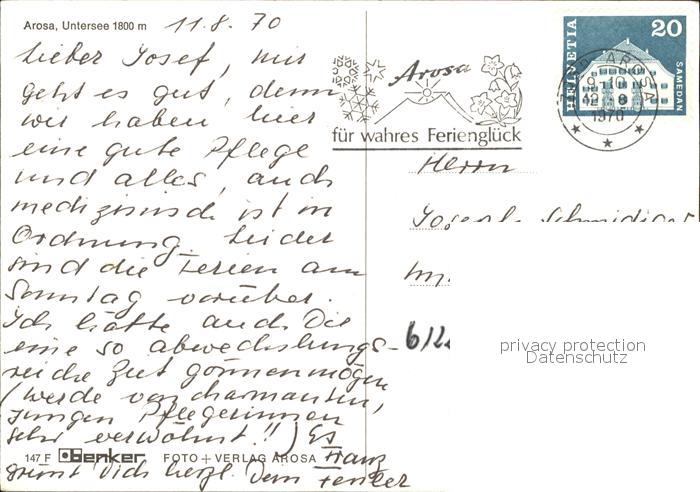 Arosa, Untersee 1800 m
11.8.70
Lieber Josef, mir
geht es gut, denn
wir haben hier
eine gute Pflege
und alles, auch
medizinisch ist in
Ordnung. Leider
sind die Ferien am
Sonntag vorüber.
Ich hätte auch Dir
eine so abwechslungs-
reiche Zeit gönnen mögen
(werde von charmanten,
jungen Pflegerinnen
sehr verwöhnt!!) Es
grüsst Dich herzl. Dein Franz
147 F Benker FOTO + VERLAG AROSA
Arosa
für wahres Ferienglück
HELVETIA
20
SAMEDAN
AROSA
1970
Herrn
Joseph Schmidiger
612
privacy protection
Datenschutz